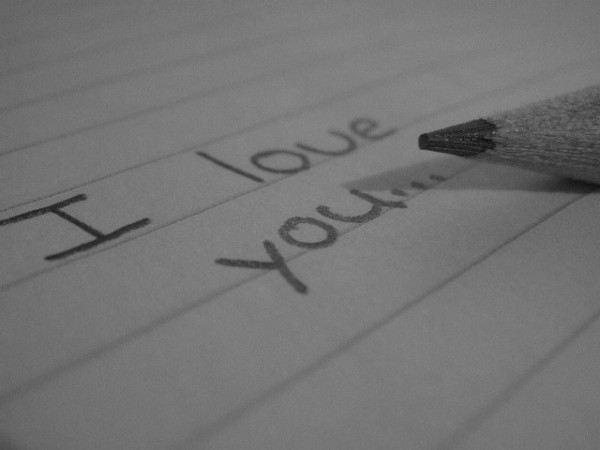 I love
you...